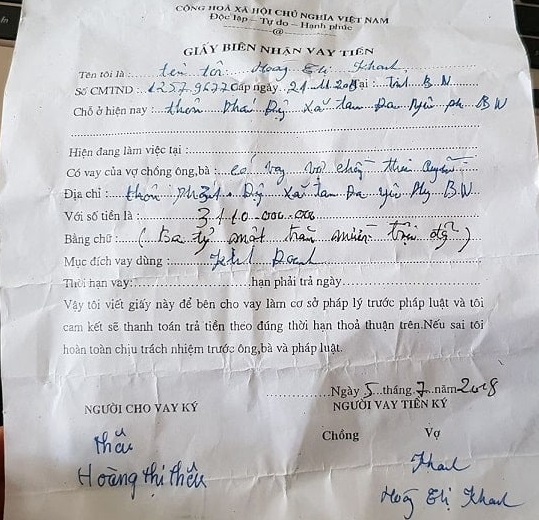 CỘNG HOÀ XÃ HỘI CHỦ NGHĨA VIỆT NAM
Độc lập – Tự do – Hạnh phúc
@
GIẤY BIÊN NHẬN VAY TIỀN
Tên tôi là : tên tôi Hoàng Thị Khanh
Số CMTND : Cấp ngày 21.11.2018 Tại : Tỉnh B.N
Chỗ ở hiện nay : thôn Xã tam Đa B N
Hiện đang làm việc tại :
Có vay của vợ chồng ông,bà : có vay vợ chồng
Địa chỉ : thôn Xã tam Đa B.N
Với số tiền là : 3110.000.000
Bằng chữ : (Ba tỷ một trăm mười triệu đg)
Mục đích vay dùng : Doanh
Thời hạn vay: hạn phải trả ngày
Vậy tôi viết giấy này để bên cho vay làm cơ sở pháp lý trước pháp luật và tôi
cam kết sẽ thanh toán trả tiền theo đúng thời hạn thoả thuận trên.Nếu sai tôi
hoàn toàn chịu trách nhiệm trước ông,bà và pháp luật.
Ngày 5 tháng 7 năm 2018
NGƯỜI CHO VAY KÝ NGƯỜI VAY TIỀN KÝ
Chồng Vợ
thêu Khanh
Hoàng thị thêu Hoàng Thị Khanh